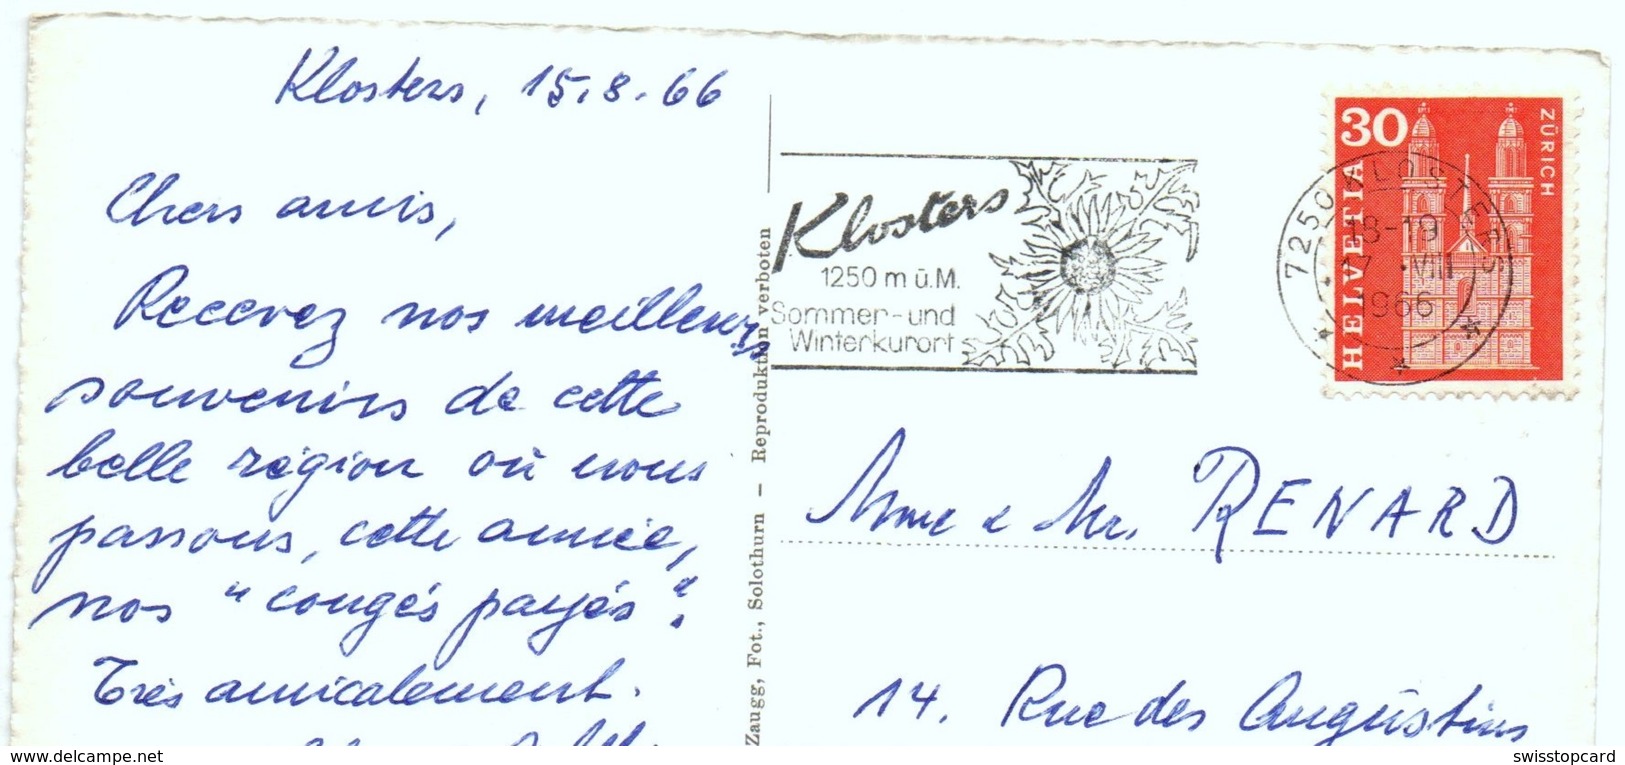 Klosters, 15.8.66
Chers amis,
Recevez nos meilleurs
souvenirs de cette
belle région où nous
passons, cette année,
nos "congés payés".
Très amicalement.
Zaugg, Fot., Solothurn – Reproduktion verboten
Klosters
1250 m ü.M.
Sommer- und
Winterkurort
7250 KLOSTERS
18-19
17.VIII
1966
30
ZÜRICH
HELVETIA
Mme & Mr. RENARD
14. Rue des Augustins
swisstopcard